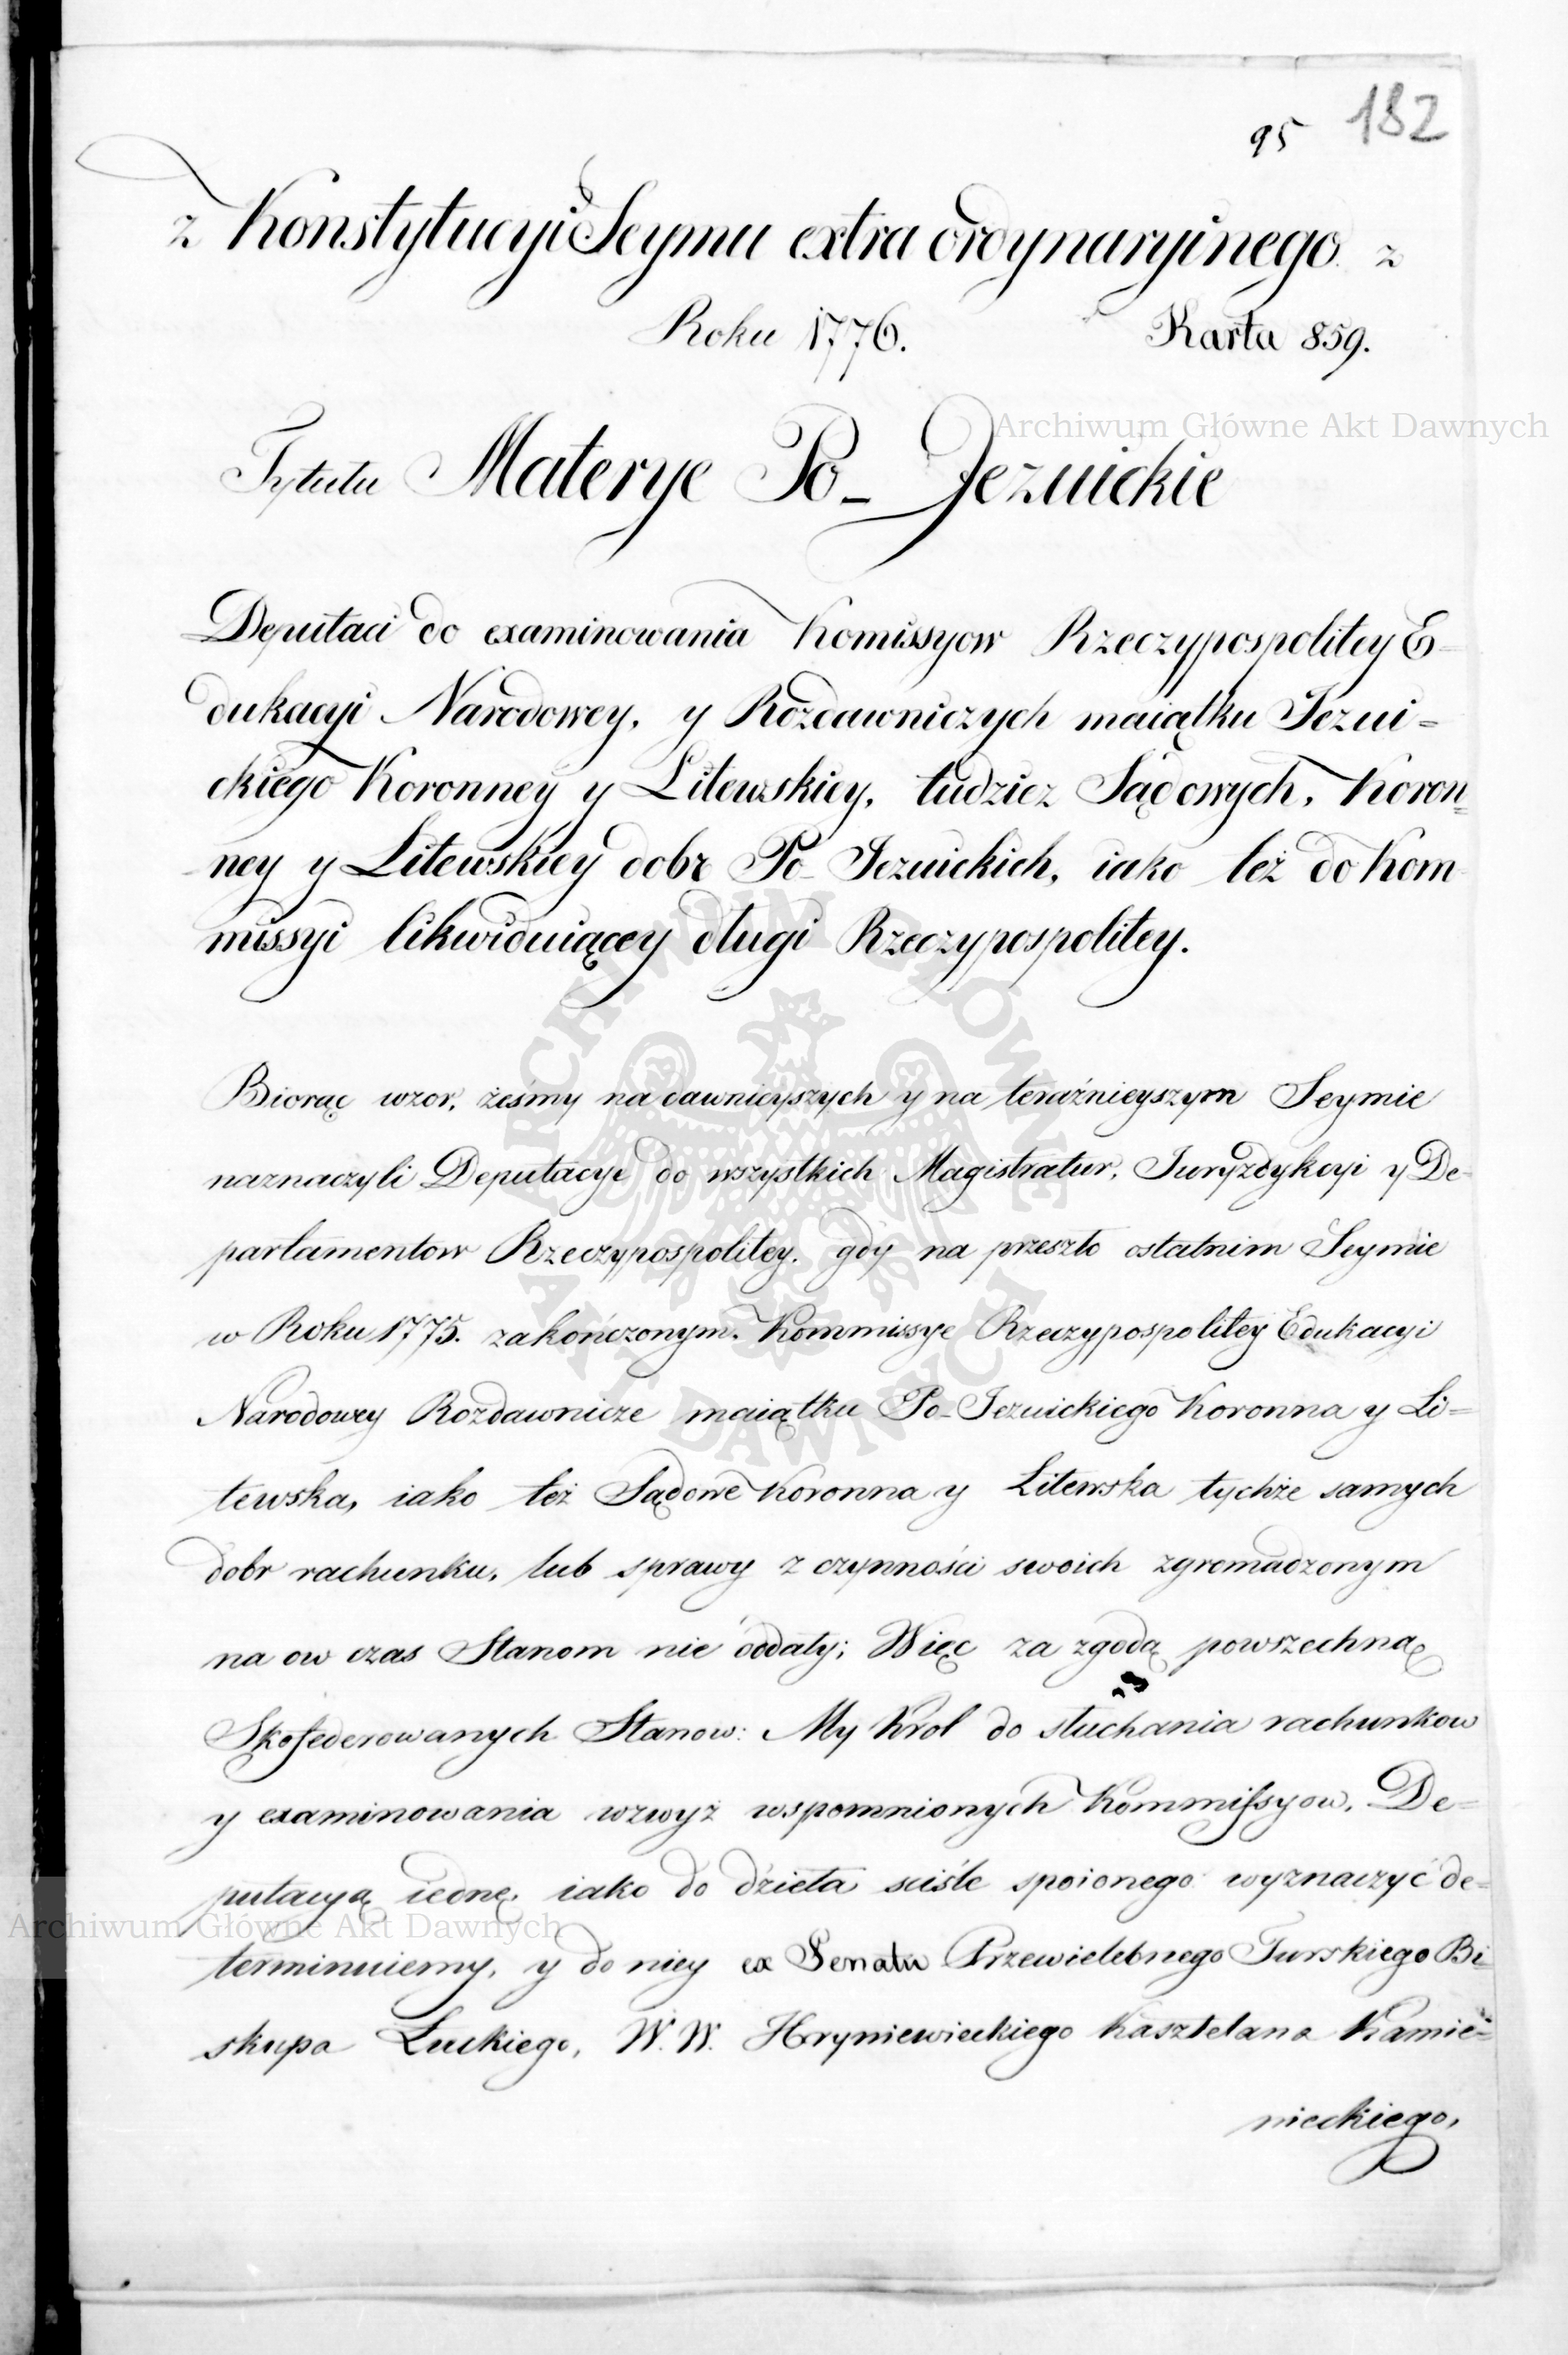 95 182
z Konstytucyi Seymu extra ordynaryinego z
Roku 1776. Karta 859.
Tytułu Materye Po-Jezuickie
Deputaci do examinowania Komissyow Rzeczypospolitey E-
dukacyi Narodowey, y Rozdawniczych maiątku Jezui=
ckiego Koronney y Litewskiey, tudziez Sądowych, Koron=
ney y Litewskiey dobr Po-Jezuickich, iako też do Kom-
missyi likwiduiącey długi Rzeczypospolitey.
Biorąc wzor, żeśmy na dawnieyszych y na teraźnieyszym Seymie
naznaczyli Deputacye do wszystkich Magistratur, Juryzdykcyi y De-
partamentow Rzeczypospolitey. gdy na przeszło ostatnim Seymie
w Roku 1775. zakończonym. Kommissye Rzeczypospolitey Edukacyi
Narodowey Rozdawnicze maiątku Po-Jezuickiego Koronna y Li=
tewska, iako też Sądowe Koronna y Litewska tychże samych
dobr rachunku, lub sprawy z czynności swoich zgromadzonym
na ow czas Stanom nie oddały; Więc za zgodą powszechną
Skofederowanych Stanow: My Krol do słuchania rachunkow
y examinowania wzwyż wspomnionych Kommissyow, De=
putacyą iednę, iako do dzieła sciśle spoionego wyznaczyć de=
terminuiemy, y do niey ex Senatu Przewielebnego Turskiego Bi=
skupa Łuckiego, W. W. Hryniewieckiego Kasztelana Kamie=
nieckiego,
Archiwum Główne Akt Dawnych
ARCHIWUM GŁÓWNE AKT DAWNYCH
Archiwum Główne Akt Dawnych